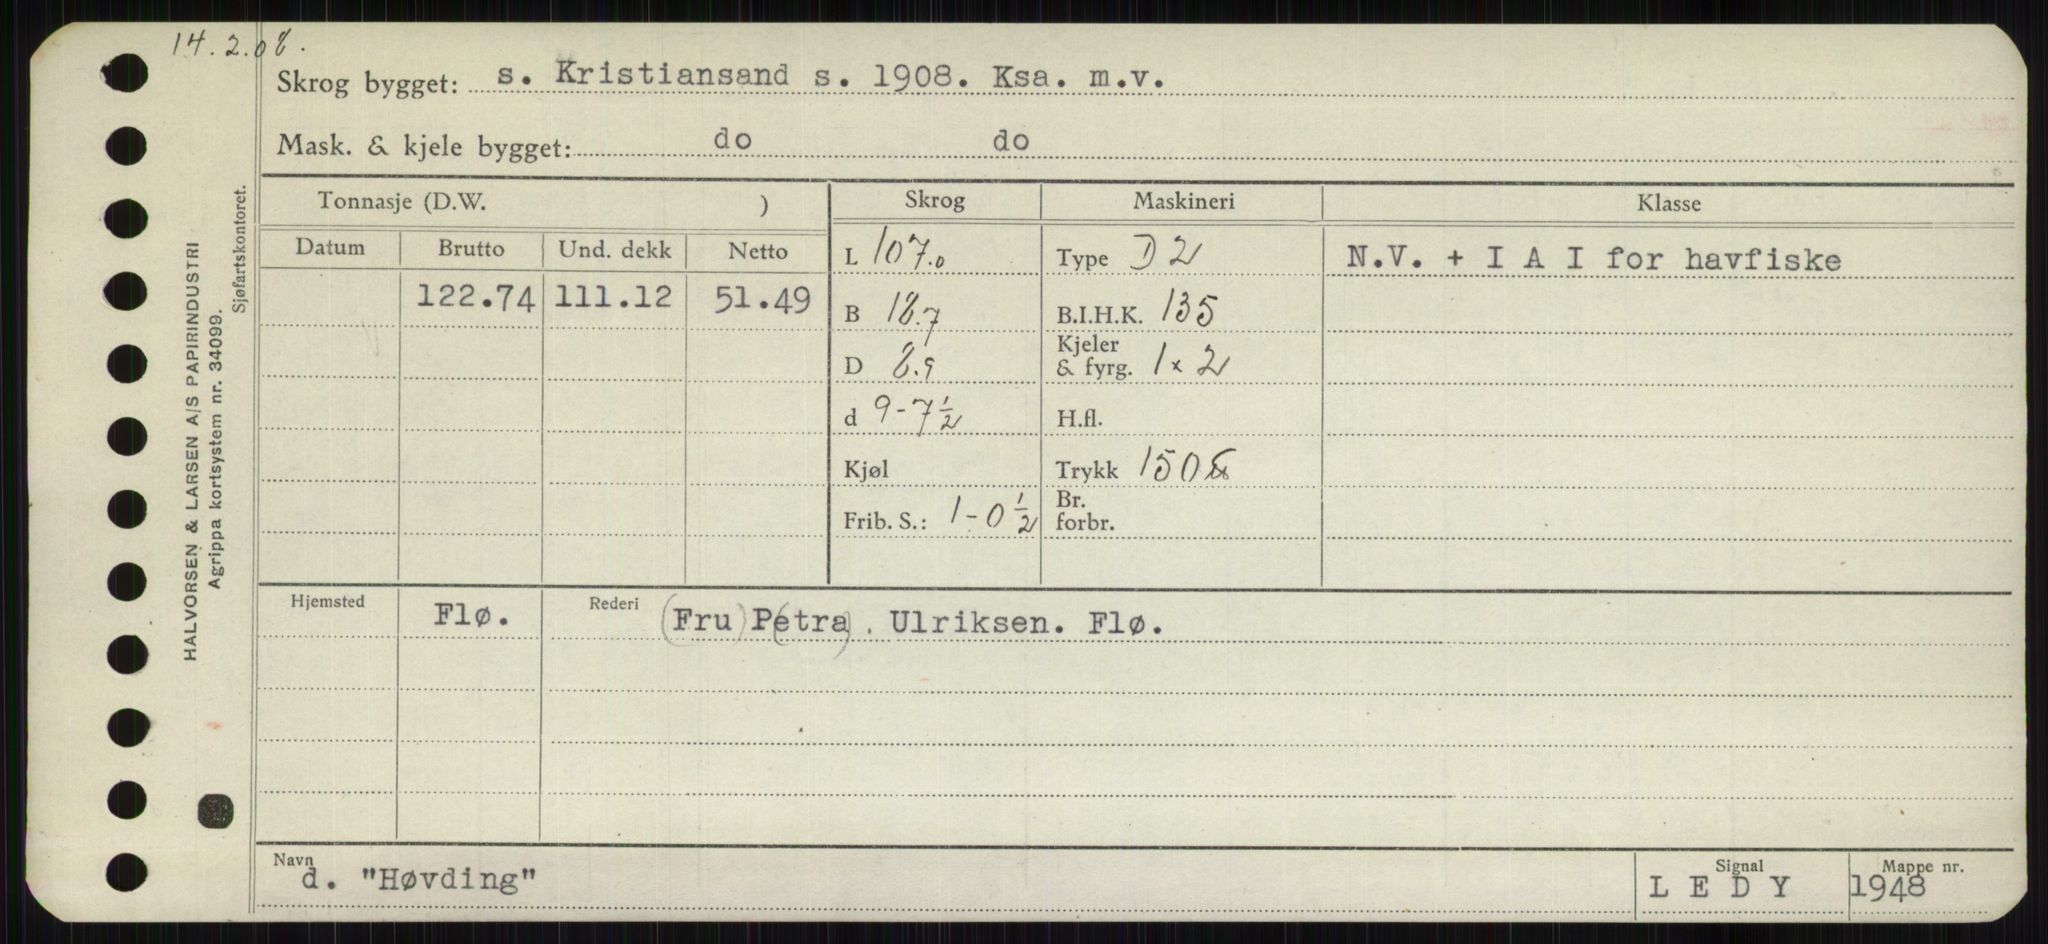 14.2.08.
Skrog bygget: s. Kristiansand s. 1908. Ksa. m.v.
Mask. & kjele bygget: do do
Tonnasje (D.W. ) Skrog Maskineri Klasse
Datum Brutto Und. dekk Netto
L 107.0 Type D2 N.V. + I A I for havfiske
122.74 111.12 51.49 B 18.7 B.I.H.K. 135
D 8.9 Kjeler & fyrg. 1x2
d 9-7½ H.fl.
Kjøl Trykk 150
Frib. S.: 1-0½ Br. forbr.
Hjemsted Flø. Rederi (Fru) P(etra). Ulriksen. Flø.
Navn d. "Høvding" Signal L E D Y Mappe nr. 1948
HALVORSEN & LARSEN A/S PAPIRINDUSTRI
Agrippa kortsystem nr. 34099.
Sjøfartskontoret.